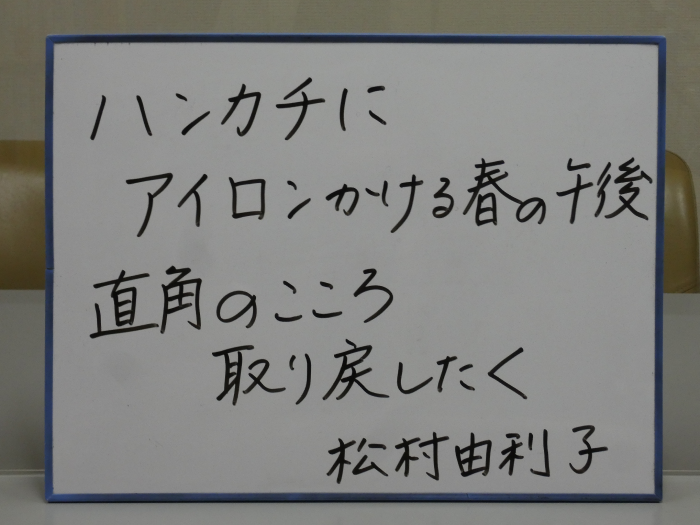 ハンカチに
アイロンかける春の午後
直角のこころ
取り戻したく
松村由利子